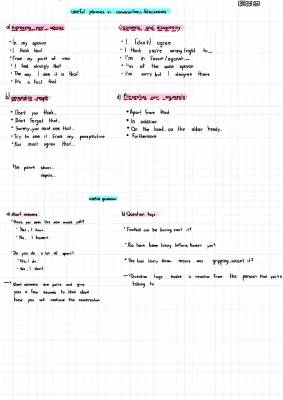 useful phrases in conversations/discussions
a) expressing your opinion
• In my opinion
• I think that
• From my point of view
• I feel strongly that
• The way I see it is that
• It's a fact that
c) agreeing and disagreeing
• I (don't) agree
• I think you're wrong/right to...
• I'm in favour/against...
• I'm of the same opinion
• I'm sorry but I disagree there
b) persuading people
• Don't you think..
• Don't forget that..
• Surely you must see that..
• Try to see it from my perspective
• You must agree that..
d) Presenting arguments
• Apart from that
• In addition
• On the one hand.. on the other hand..
• Furthermore
The point
again..
useful grammar
a) short answers
• Have you seen the new movie yet?
- Yes, I have.
- No, I haven't.
• Do you do a lot of sport?
- Yes, I do.
- No, I don't.
→ short answers are polite and give
you a few seconds to think about
how you will continue the conversation
b) Question tags
• Football can be boring can't it?
• You have been living before, haven't you?
• The last Harry Potter movie was gripping, wasn't it?
→ Question tags evoke a reaction from the person that you're
talking to